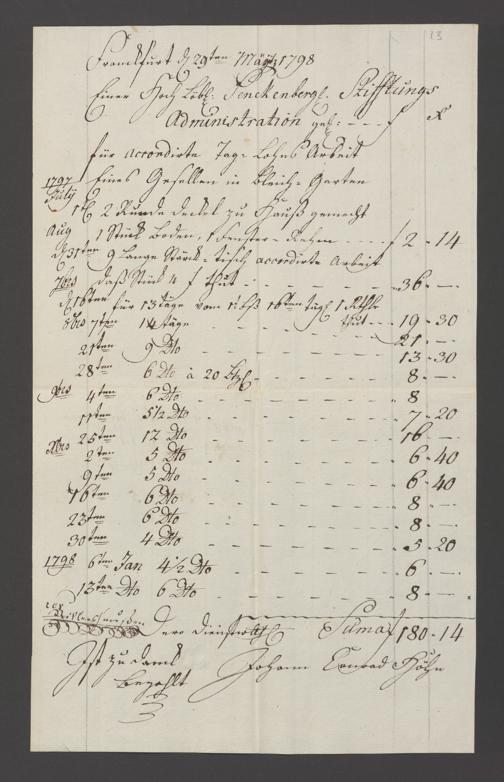 13
Franckfurt d 29ten Märtz 1798
Einer Hoch Löbl. Senckenbergl. Stifftungs
Administration gel: - - - f x
für accordirte Tag-Lohns Arbeit
1797 Eines Gesellen in Bleich-Garten
July
2 Runde deckel zu Hauß gemacht
Aug 1 Stück Boden, 1 fenster-Rahm - - - - f 2 - 14
d 31ten 9 Lange Stück-tisch accordirte Arbeit
7bris daß Stück 4 f thut - - - - - - 36 - —
d 16ten für 13 täge vom biß 16ten tägl. 1 Rthlr
thut - - 19 - 30
8bris 7ten 14 täge - - - - - - 21 - —
21ten 9 Dto - - - - - - 13 - 30
28ten 6 Dto à 20 - - - - - - 8 - —
9bris 4ten 6 Dto - - - - - - 8
11ten 5½ Dto - - - - - - 7 - 20
25ten 12 Dto - - - - - - 16 —
Xbris 2ten 5 Dto - - - - - - 6 - 40
9ten 5 Dto - - - - - - 6 - 40
16ten 6 Dto - - - - - - 8 - —
23ten 6 Dto - - - - - - 8 - —
30ten 4 Dto - - - - - - 5 - 20
1798 6ten Jan 4½ Dto - - - - - - 6 - —
13ten Dto 6 Dto - - - - - - 8 -
Suma f 180 - 14
Ist zu danck Johann Conrad Höhn
bezahlt